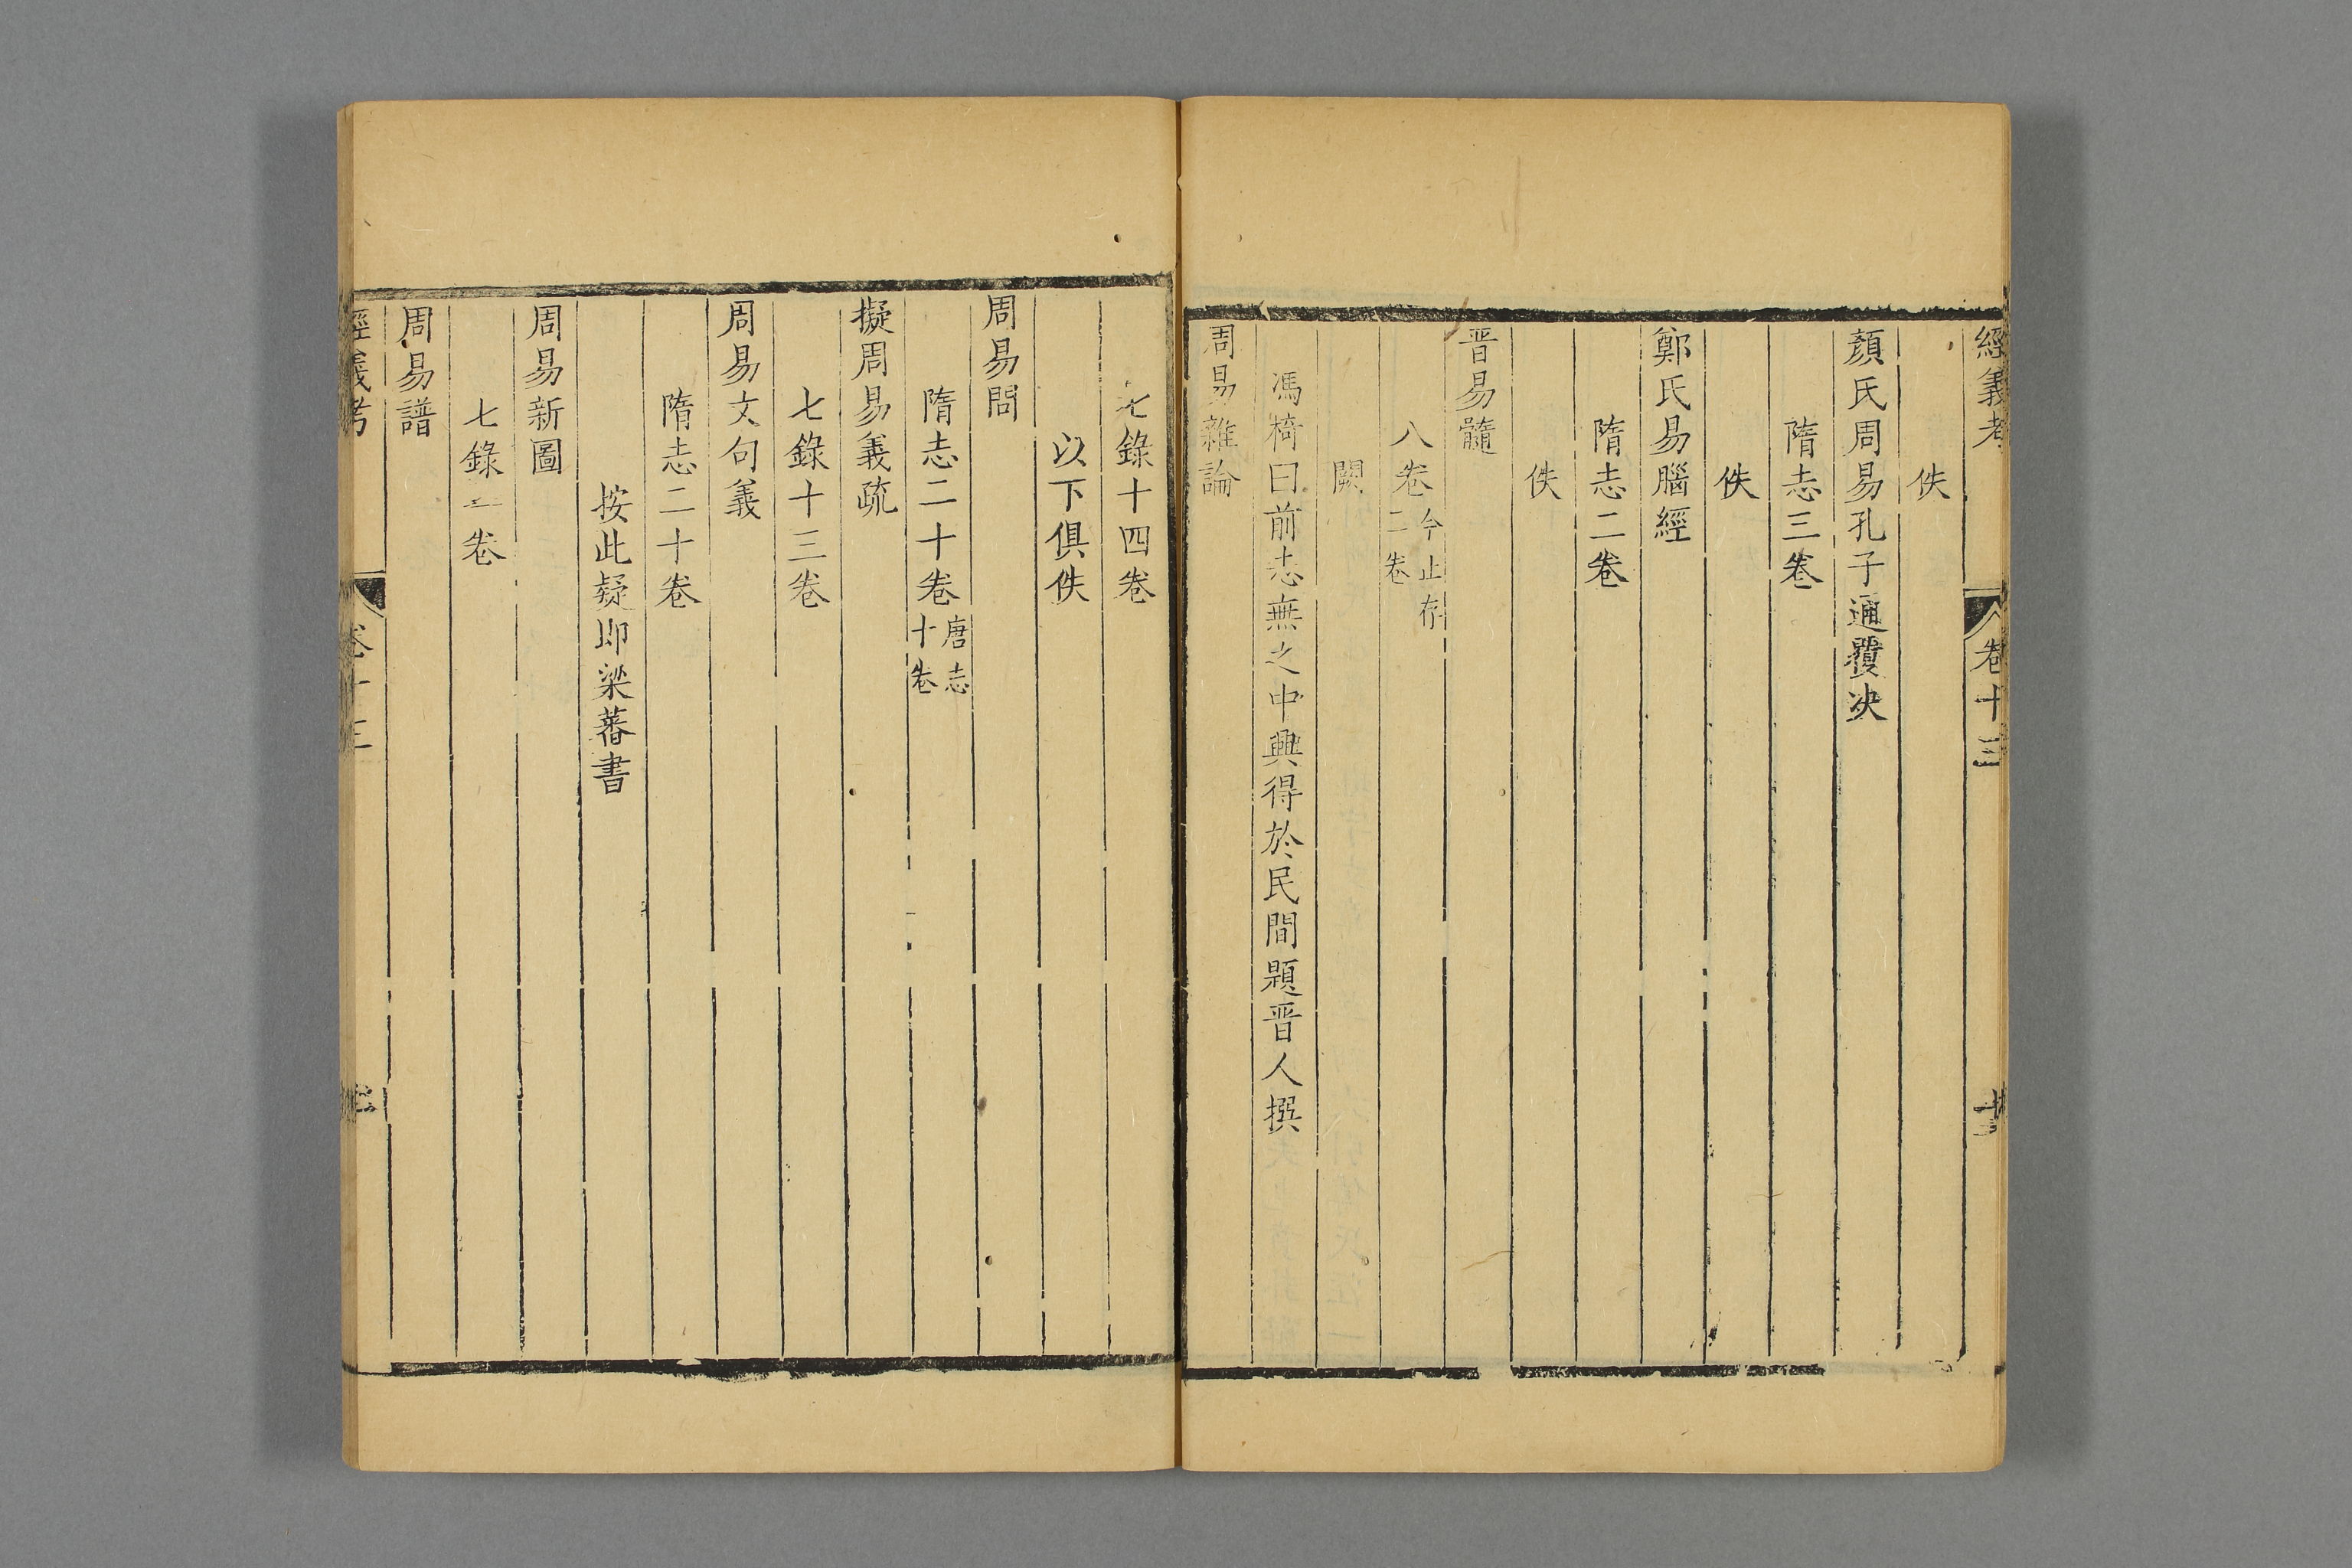 經義考 卷十三
佚
顏氏周易孔子通覆决
隋志三卷
佚
鄭氏易腦經
隋志二卷
佚
晋易髓
八卷今止存二卷
闕
馮椅曰前志無之中興得於民間題晋人撰
周易雜論
七錄十四卷
以下俱佚
周易問
隋志二十卷唐志十卷
擬周易義疏
七錄十三卷
周易文句義
隋志二十卷
按此疑即梁蕃書
周易新圖
七錄一卷
周易譜
經義考 卷十三